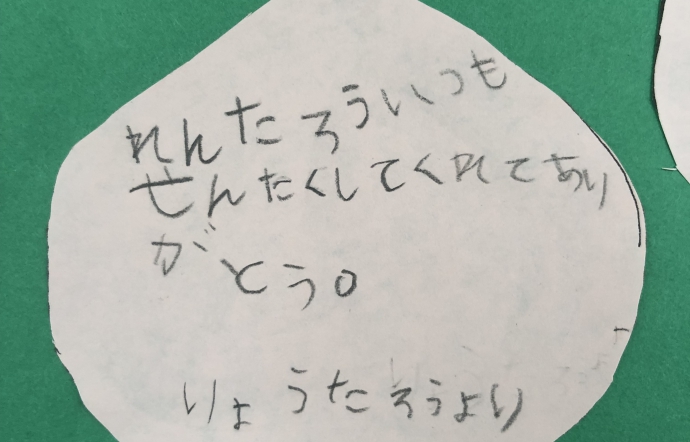 れんたろういつも
せんたくしてくれてあり
がとう。
りょうたろうより